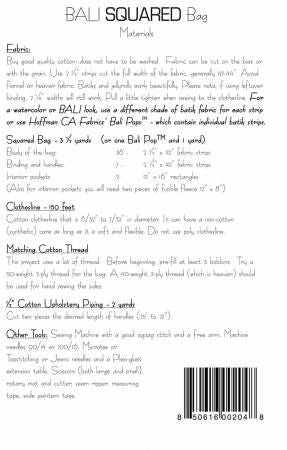 BALI SQUARED Bag
Materials
Fabric:
Buy good quality cotton; does not have to be washed. Fabric can be cut on the bias or
with the grain. Use 2 ½" strips cut the full width of the fabric, generally 42-44". Avoid
flannel or heavier fabric. Batiks and jellyrolls work beautifully. Please note, if using leftover
binding, 2 ¼" widths will still work. Pull a little tighten when sewing to the clothesline. For
a watercolor or BALI look, use a different shade of batik fabric for each strip
or use Hoffman CA Fabrics' Bali Pops™ - which contain individual batik strips.
Squared Bag - 3 ½ yards (or one Bali Pop™ and 1 yard)
Body of the bag: 36 - 2 ½" x 42" fabric strips
Binding and handles: 7 - 2 ½" x 42" fabric strips
Interior pockets 2- 12" x 16" rectangles
(Also for interior pockets you will need two pieces of fusible fleece 12" x 8")
Clothesline - 150 feet
Cotton clothesline that is 6/32" to 7/32" in diameter. It can have a non-cotton
(synthetic) core as long as it is soft and flexible. Do not use poly clothesline.
Matching Cotton Thread
This project uses a lot of thread. Before beginning, pre-fill at least 3 bobbins. Try a
50-weight 2-ply thread for the bag. A 40-weight 3-ply thread (which is heavier) should
be used for hand sewing the sides.
½" Cotton Upholstery Piping - 2 yards
Cut two pieces the desired length of handles (25" to 27").
Other Tools: Sewing Machine with a good zigzag stitch and a free arm, Machine
needles 90/14 or 100/16, Microtex or
Topstitching or Jeans needles and a Plexi-glass
extension table. Scissors (both large and small),
rotary mat and cutter, seam ripper, measuring
tape, wide painters tape.
8 50616 00204 8